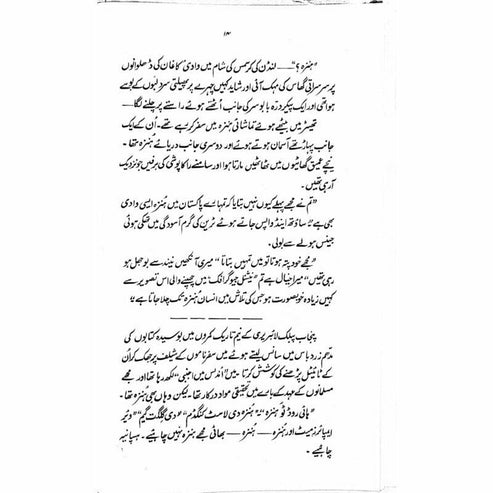 ۱۳
"ہنزہ؟" —— لندن کی کرسمس کی شام میں وادیٔ کاغان کی ڈھلوانوں
پر سرسراتی گھاس کی مہک آئی اور شاید کہیں چہرے پر پھیلتی سرد لبوں کے بوسے
ہوا تھی اور ایک پیکر درّہ بابوسر کی جانب اٹھتے ہوئے راستے پر چلنے لگا —
تھیٹر میں بیٹھے ہوئے تماشائی ہنزہ میں سفر کر رہے تھے۔ اُن کے ایک
جانب پہاڑ تھے آسمان ہوتے ہوئے اور دوسری جانب دریائے ہنزہ تھا۔
نیچے عمیق گھاٹیوں میں ٹھاٹھیں مارتا ہوا اور سامنے راکاپوشی کی برفیں جو نزدیک
آرہی تھیں۔
"تم نے مجھے پہلے کیوں نہیں بتایا کہ تمہارے پاکستان میں ہنزہ ایسی وادی
بھی ہے" ساؤتھ اینڈ واپس جاتے ہوئے ٹرین کی گرم آسودگی میں تھکی ہوئی
جینس ہولے سے بولی۔
"مجھے خود پتہ ہوتا تو میں تمہیں بتاتا" میری آنکھیں نیند سے بوجھل ہو
رہی تھیں "میرا خیال ہے تم "نیشنل جیوگرافک" میں چھپنے والی اس تصویر سے
کہیں زیادہ خوبصورت ہو جس کی تلاش میں انسان ہنزہ تک چلا جاتا ہے"
پنجاب پبلک لائبریری کے نیم تاریک کمروں میں بوسیدہ کتابوں کی
مدھم زرد باس میں سانس لیتے ہوئے میں سفرناموں کے شیلف پر جھک کر اُن
کے ٹائیٹل پڑھنے کی کوشش کرتا۔ میں "اُندلس میں اجنبی" لکھ رہا تھا اور مجھے
مسلمانوں کے عہد کے بارے میں تحقیقی مواد درکار تھا۔ لیکن وہاں بھی ہنزہ تھا۔
"ہائی روڈ ٹو ہنزہ" "ہنزہ دی لاسٹ کنگڈم" "دی گلگت گیم" "ویئر
ایمپائرز میٹ اور ہنزہ — ہنزہ — بھائی مجھے ہنزہ نہیں چاہیے۔ ہسپانیہ
چاہیے۔